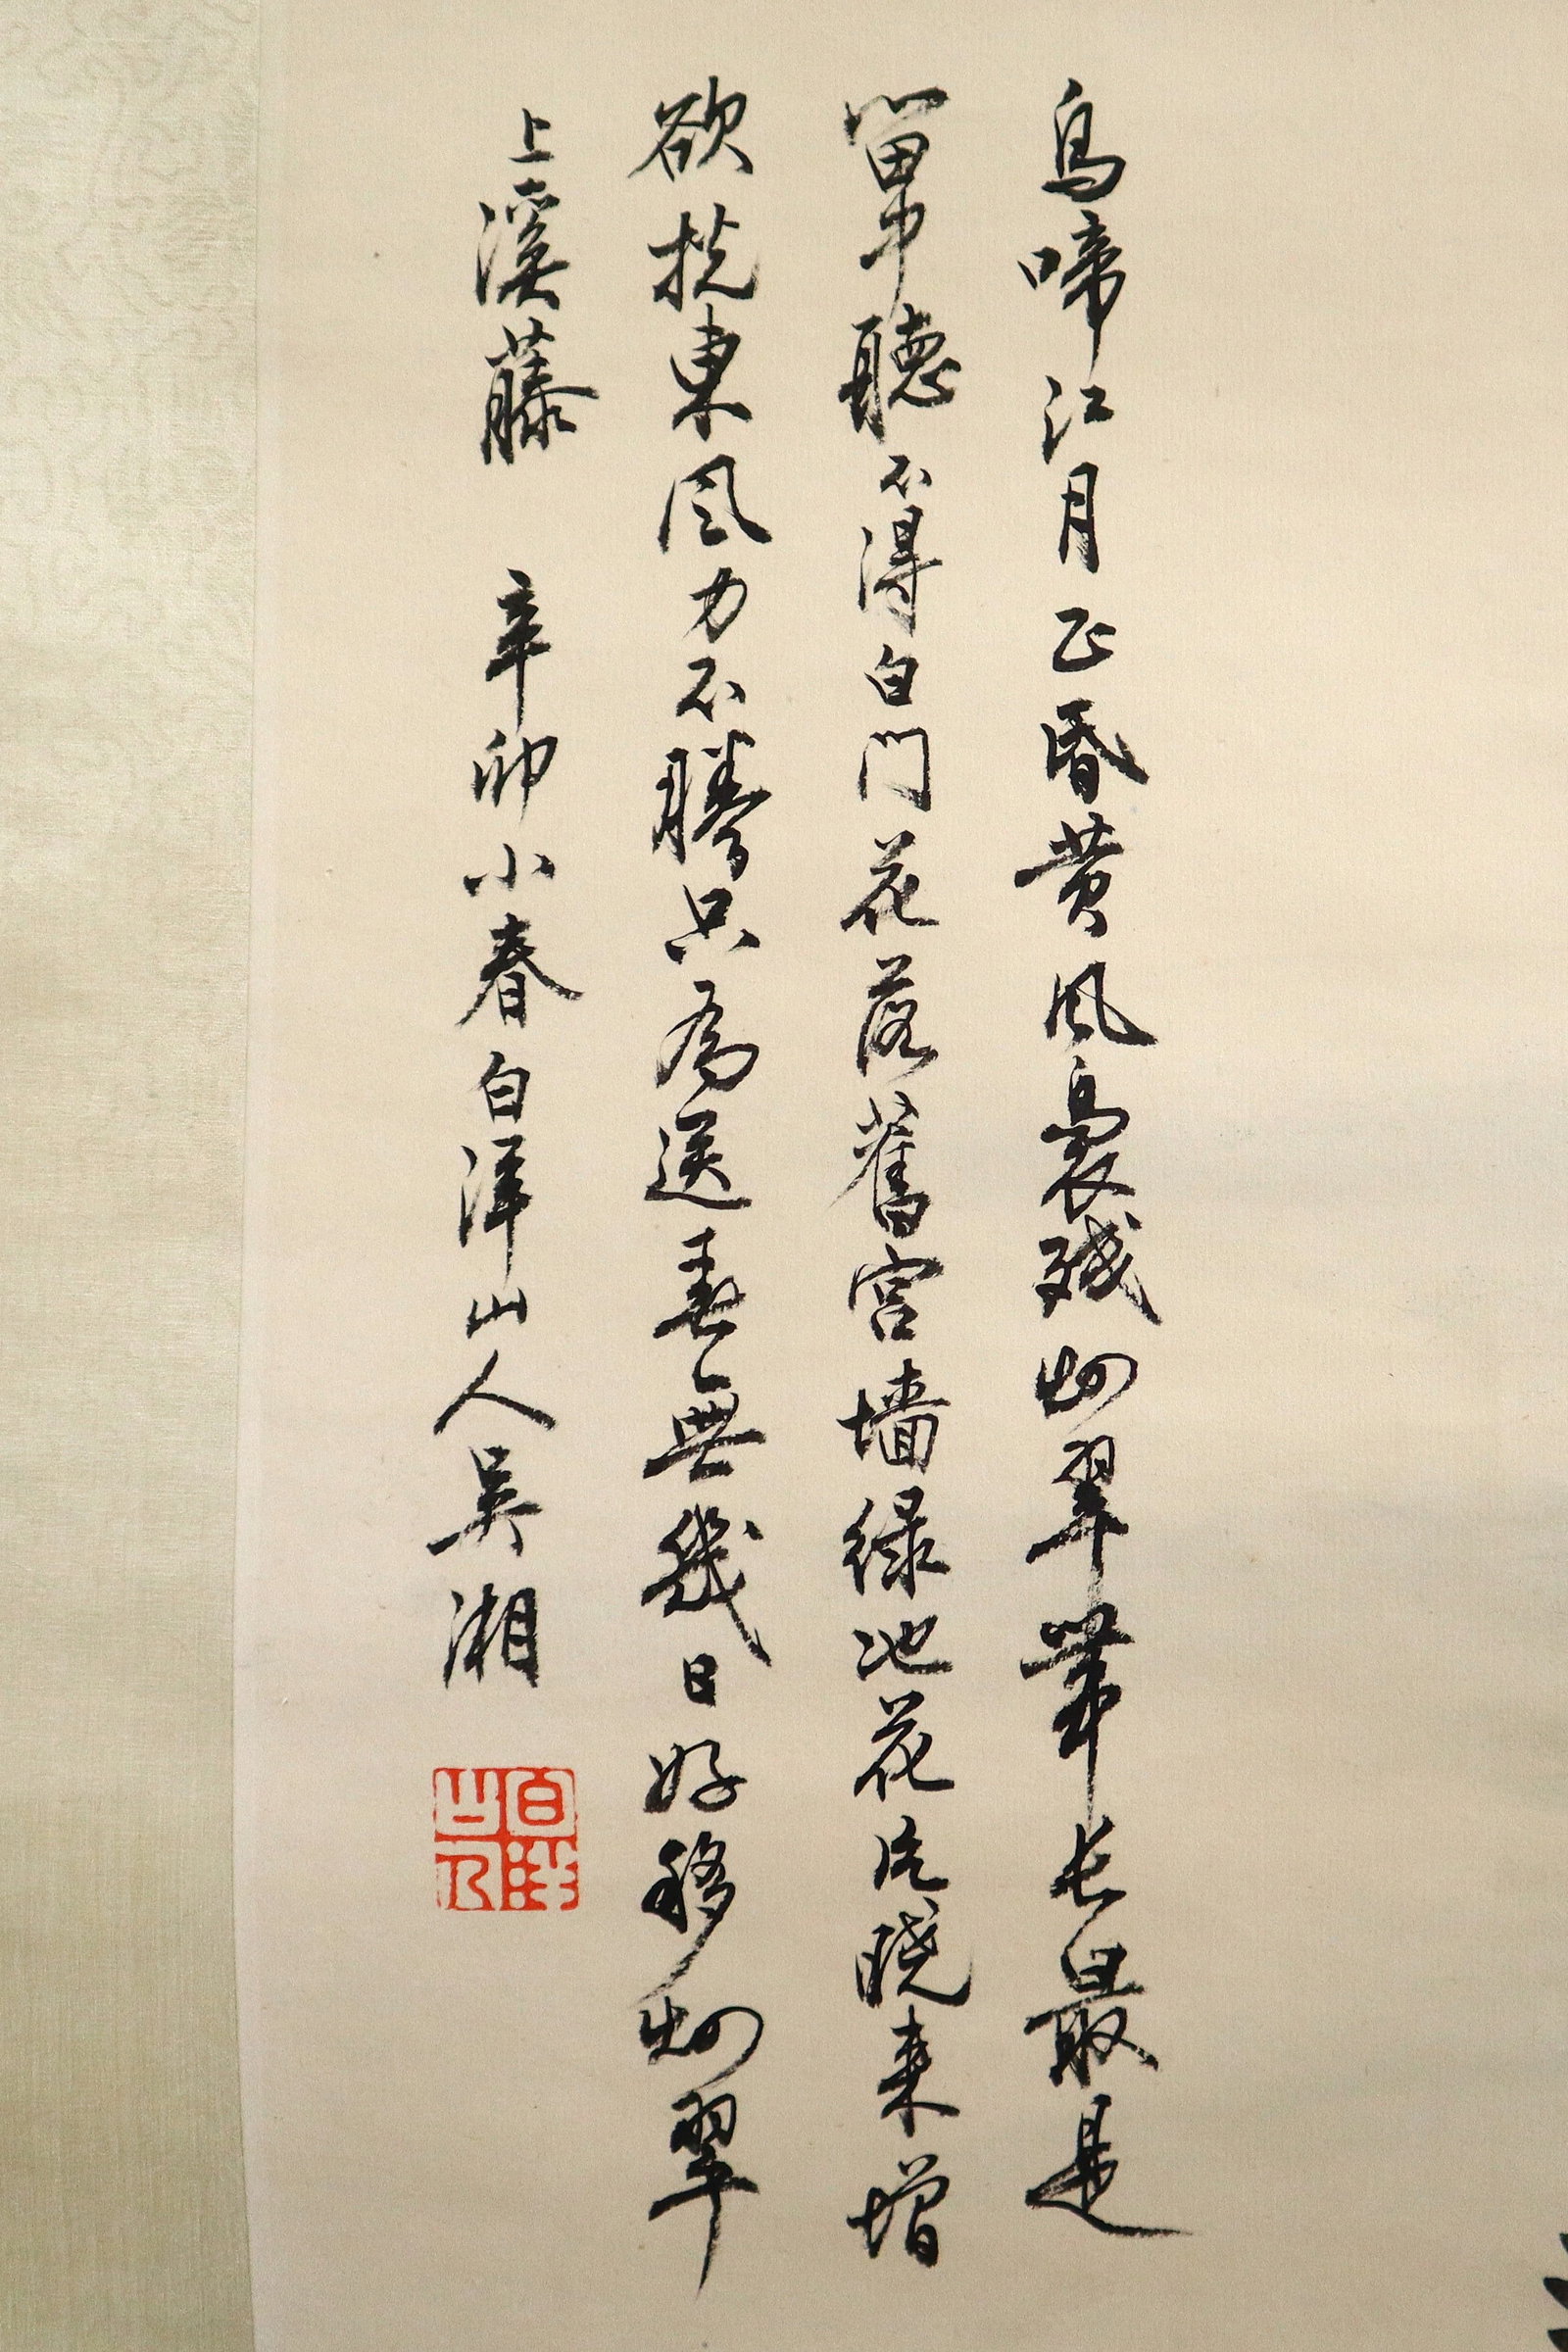 鳥啼江月正昏黄風裊殘烟翠帶长最是
窗中聽不得白门花落舊宮墙绿池花片曉来增
欲挽東風力不勝只為送春無幾日好移烟翠
上溪藤 辛卯小春白洋山人吴湘
白洋山人